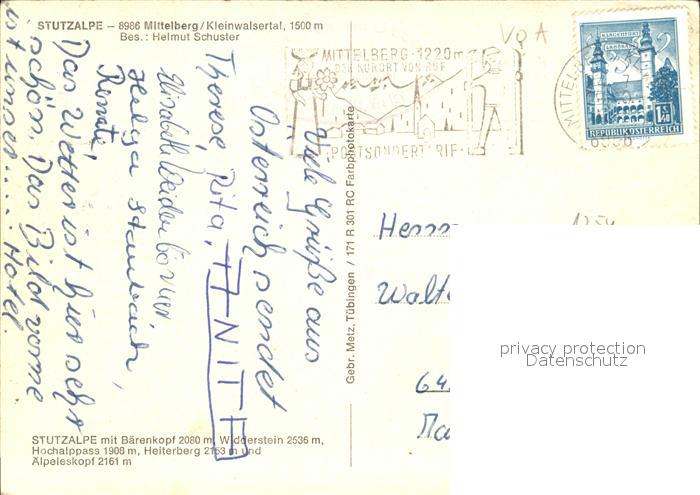 STUTZALPE – 8986 Mittelberg/Kleinwalsertal, 1500 m
Bes.: Helmut Schuster
Viele Grüße aus
Österreich sendet
Therese, Rita, ANITA
Elisabeth
Helga
Renate,
Das Wetter ist hier sehr
schön. Das Bild vorne
ist unser.... Hotel.
STUTZALPE mit Bärenkopf 2080 m, Widderstein 2536 m,
Hochalppass 1908 m, Heiterberg 2153 m und
Älpeleskopf 2161 m
Gebr. Metz, Tübingen / 171 R 301 RC Farbphotokarte
MITTELBERG·1220m
DER KURORT VON RUF
POSTSONDERTARIF
MITTELBERG
KLAGENFURT
LANDHAUS
1.50
REPUBLIK ÖSTERREICH
V A
Herrn
Walt
64
privacy protection
Datenschutz